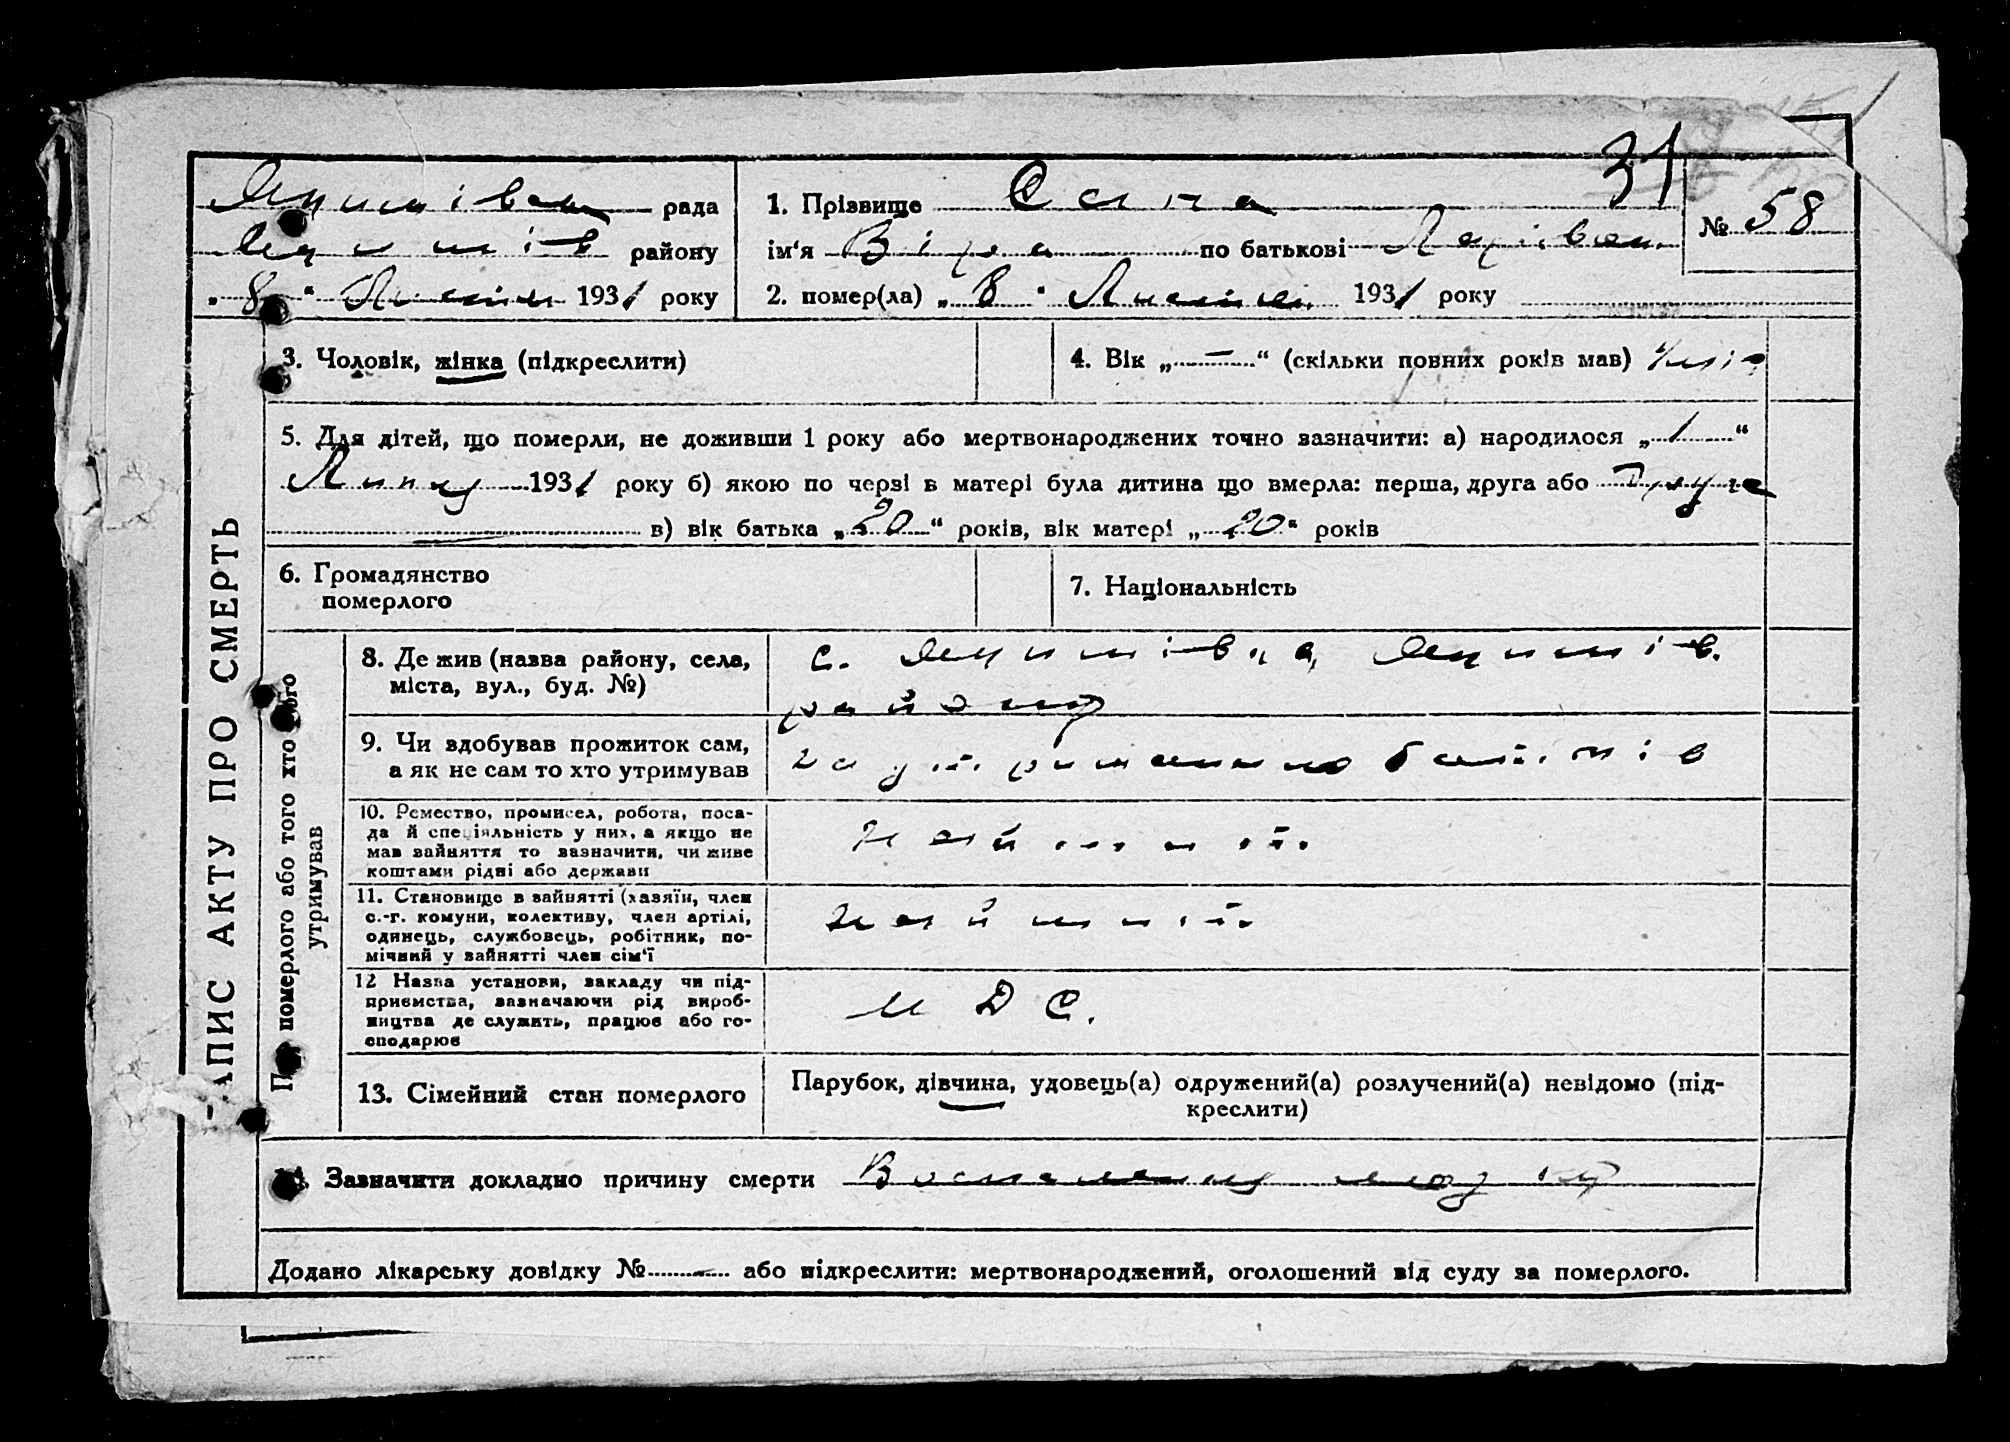 31
рада
1. Прізвище
№ 58
району
ім'я Віра по батькові
„8“ 1931 року
2. помер(ла) „8“ 1931 року
3. Чоловік, жінка (підкреслити)
4. Вік „—“ (скільки повних років мав)
5. Для дітей, що померли, не доживши 1 року або мертвонароджених точно зазначити: а) народилося „1“
Липня 1931 року б) якою по черзі в матері була дитина що вмерла: перша, друга або Друга
в) вік батька „20“ років, вік матері „20“ років
6. Громадянство
померлого
7. Національність
ЗАПИС АКТУ ПРО СМЕРТЬ
померлого або того хто його
утримував
8. Де жив (назва району, села,
міста, вул., буд. №)
с. Яцишівца, Яцишів.
району
9. Чи здобував прожиток сам,
а як не сам то хто утримував
на утриманню батьків
10. Ремество, промисел, робота, поса-
да й спеціяльність у них, а якщо не
мав зайняття то зазначити, чи живе
коштами рідні або держави
наймит.
11. Становище в зайнятті (хазяїн, член
с.-г. комуни, колективу, член артілі,
одинець, службовець, робітник, по-
мічний у зайнятті член сім'ї
наймит.
12 Назва установи, закладу чи під-
приємства, зазначаючи рід вироб-
ництва де служить, працює або го-
сподарює
М Д С.
13. Сімейний стан померлого
Парубок, дівчина, удовець(а) одружений(а) розлучений(а) невідомо (під-
креслити)
14. Зазначити докладно причину смерти
Додано лікарську довідку №— або підкреслити: мертвонароджений, оголошений від суду за померлого.